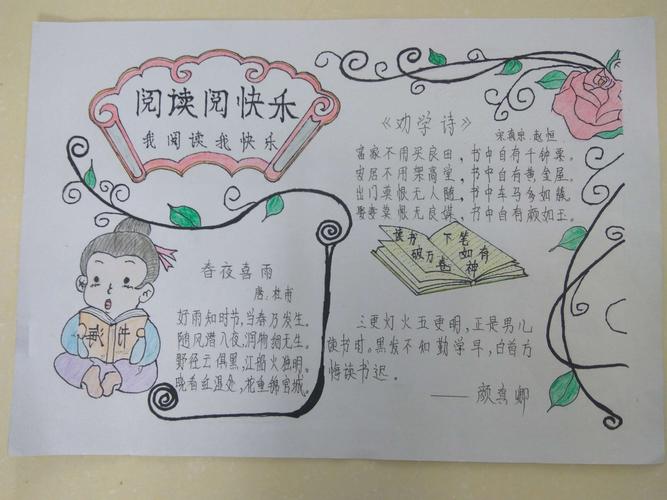 阅读阅快乐
我阅读我快乐
《劝学诗》
宋真宗·赵恒
富家不用买良田，书中自有千钟粟。
安居不用架高堂，书中自有黄金屋。
出门莫恨无人随，书中车马多如簇。
娶妻莫恨无良媒，书中自有颜如玉。
读书
破万卷
下笔
如有
神
春夜喜雨
唐：杜甫
好雨知时节，当春乃发生。
随风潜入夜，润物细无生。
野径云俱黑，江船火独明。
晓看红湿处，花重锦官城。
读书
三更灯火五更明，正是男儿
读书时。黑发不知勤学早，白首方
悔读书迟。
——颜真卿